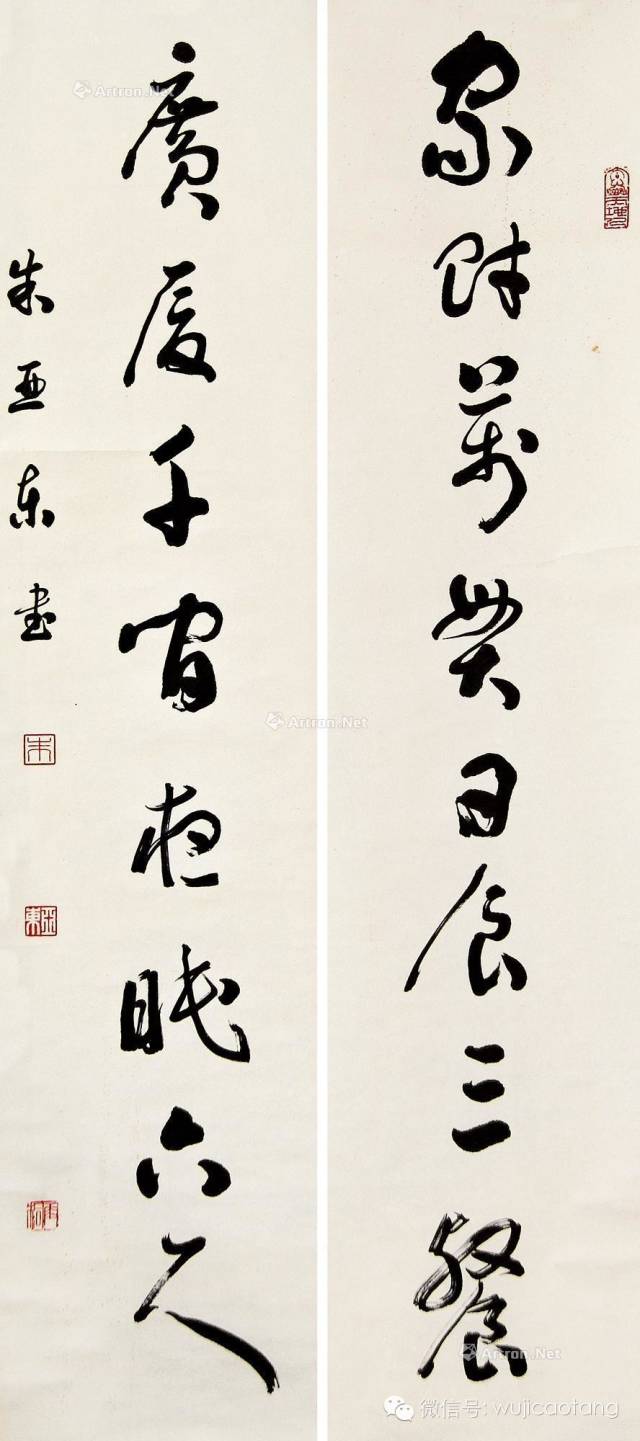 家財萬貫日食三餐
廣厦千間夜眠六尺
朱亞東書
朱
Artron.Net
Artron.Net
Artron.Net
微信号: wujicaotang